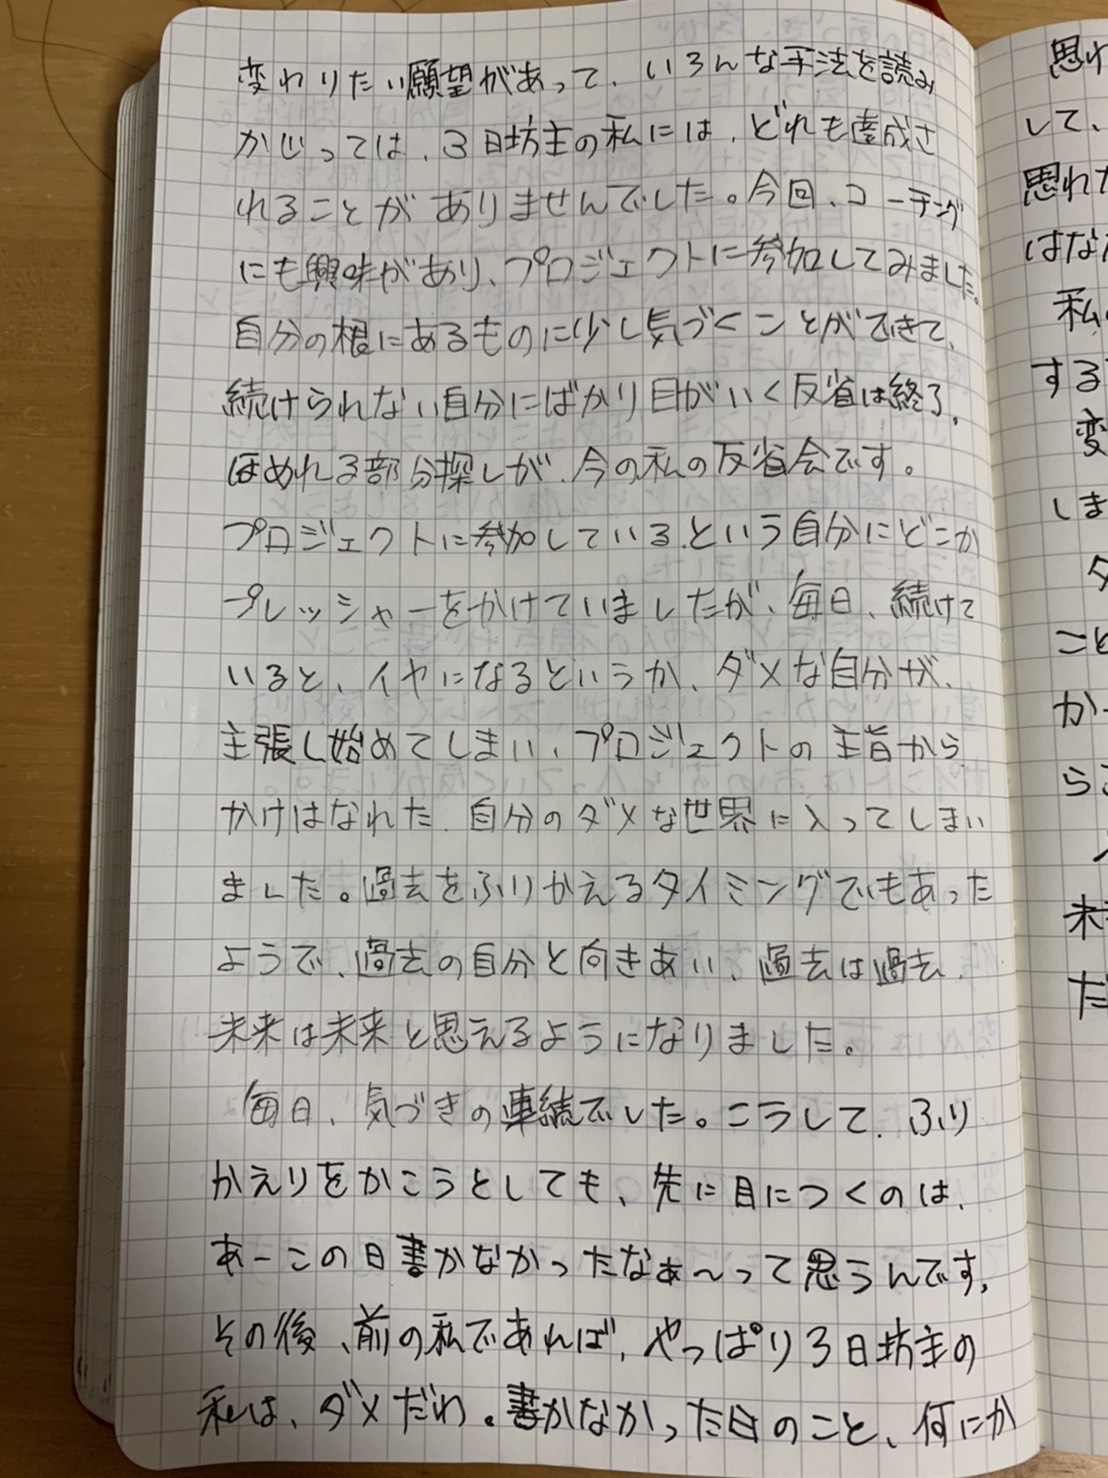 変わりたい願望があって、いろんな手法を読み
かじっては、3日坊主の私には、どれも達成さ
れることがありませんでした。今回、コーチング
にも興味があり、プロジェクトに参加してみました。
自分の根にあるものに少し気づくことができて、
続けられない自分にばかり目がいく反省は終了。
ほめれる部分探しが、今の私の反省会です。
プロジェクトに参加している、という自分にどこか
プレッシャーをかけていましたが、毎日、続けて
いると、イヤになるというか、ダメな自分が、
主張し始めてしまい、プロジェクトの主旨から
かけはなれた、自分のダメな世界に入ってしまい
ました。過去をふりかえるタイミングでもあった
ようで、過去の自分と向きあい、過去は過去、
未来は未来と思えるようになりました。
毎日、気づきの連続でした。こうして、ふり
かえりをかこうとしても、先に目につくのは、
あーこの日書かなかったなぁ〜って思うんです。
その後、前の私であれば、やっぱり3日坊主の
私は、ダメだわ。書かなかった日のこと、何にか
思れ
して、
思れた
はな
私
する
変
しま
こと
か
ら
未
だ